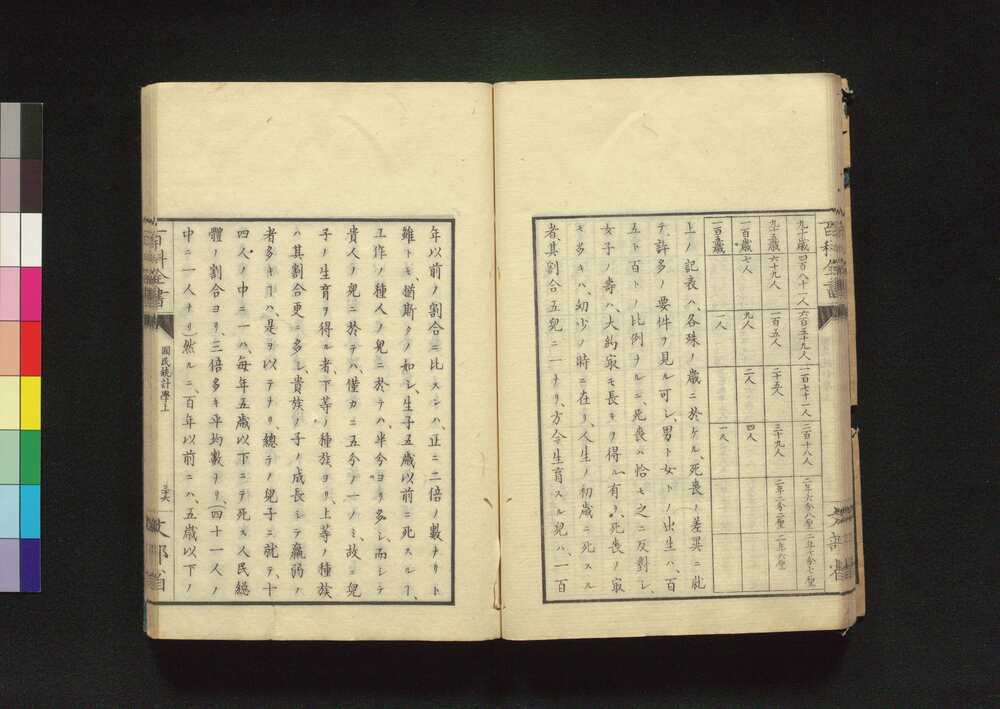 百科全書
文部省
九十歳 四百八十一人 六百三十九人 一百七十一人 二百十八人 二年六分八厘 二年七分七厘
九十五歳 六十九人 一百五人 二十五人 三十九人 二年二分二厘 二年六厘
一百歳 七人 九人 二人 四人
一百五歳 一人 一人
上ノ記表ハ、各殊ノ歳ニ於ケル、死喪ノ差異ニ就
テ、許多ノ要件ヲ見ル可シ、男ト女トノ出生ハ、百
五ト百トノ比例ナルニ、死喪ハ恰モ之ニ反對シ、
女子ノ壽ハ、大約㝡モ長キヲ得ル有リ、死喪ノ㝡
モ多キハ、幼少ノ時ニ在リ、人生ノ初歳ニ死スル
者、其割合五兒ニ一ナリ、方今生育スル兒ハ、一百
年以前ノ割合ニ比スレハ、正ニ二倍ノ數ナリト
雖トモ、猶斯クノ如シ、生子五歳以前ニ死スルヿ、
工作ノ種人ノ兒ニ於テハ、半分ヨリ多シ、而シテ
貴人ノ兒ニ於テハ、僅カニ五分ノ一ノミ、故ニ兒
子ノ生育ヲ得ル者、下等ノ種族ヨリ、上等ノ種族
ハ其割合更ニ多シ、貴族ノ子ノ成長シテ羸弱ノ
者多キハ、是ヲ以テナリ、總テノ兒子ニ就テ、十
四人ノ中ニ一ハ、毎年五歳以下ニテ死ス、人民總
體ノ割合ヨリ、三倍多キ平均數ナリ、(四十一人ノ
中ニ一人ナリ)然ルニ、百年以前ニハ、五歳以下ノ
百科全書
國民統計學上
三十六
文部省